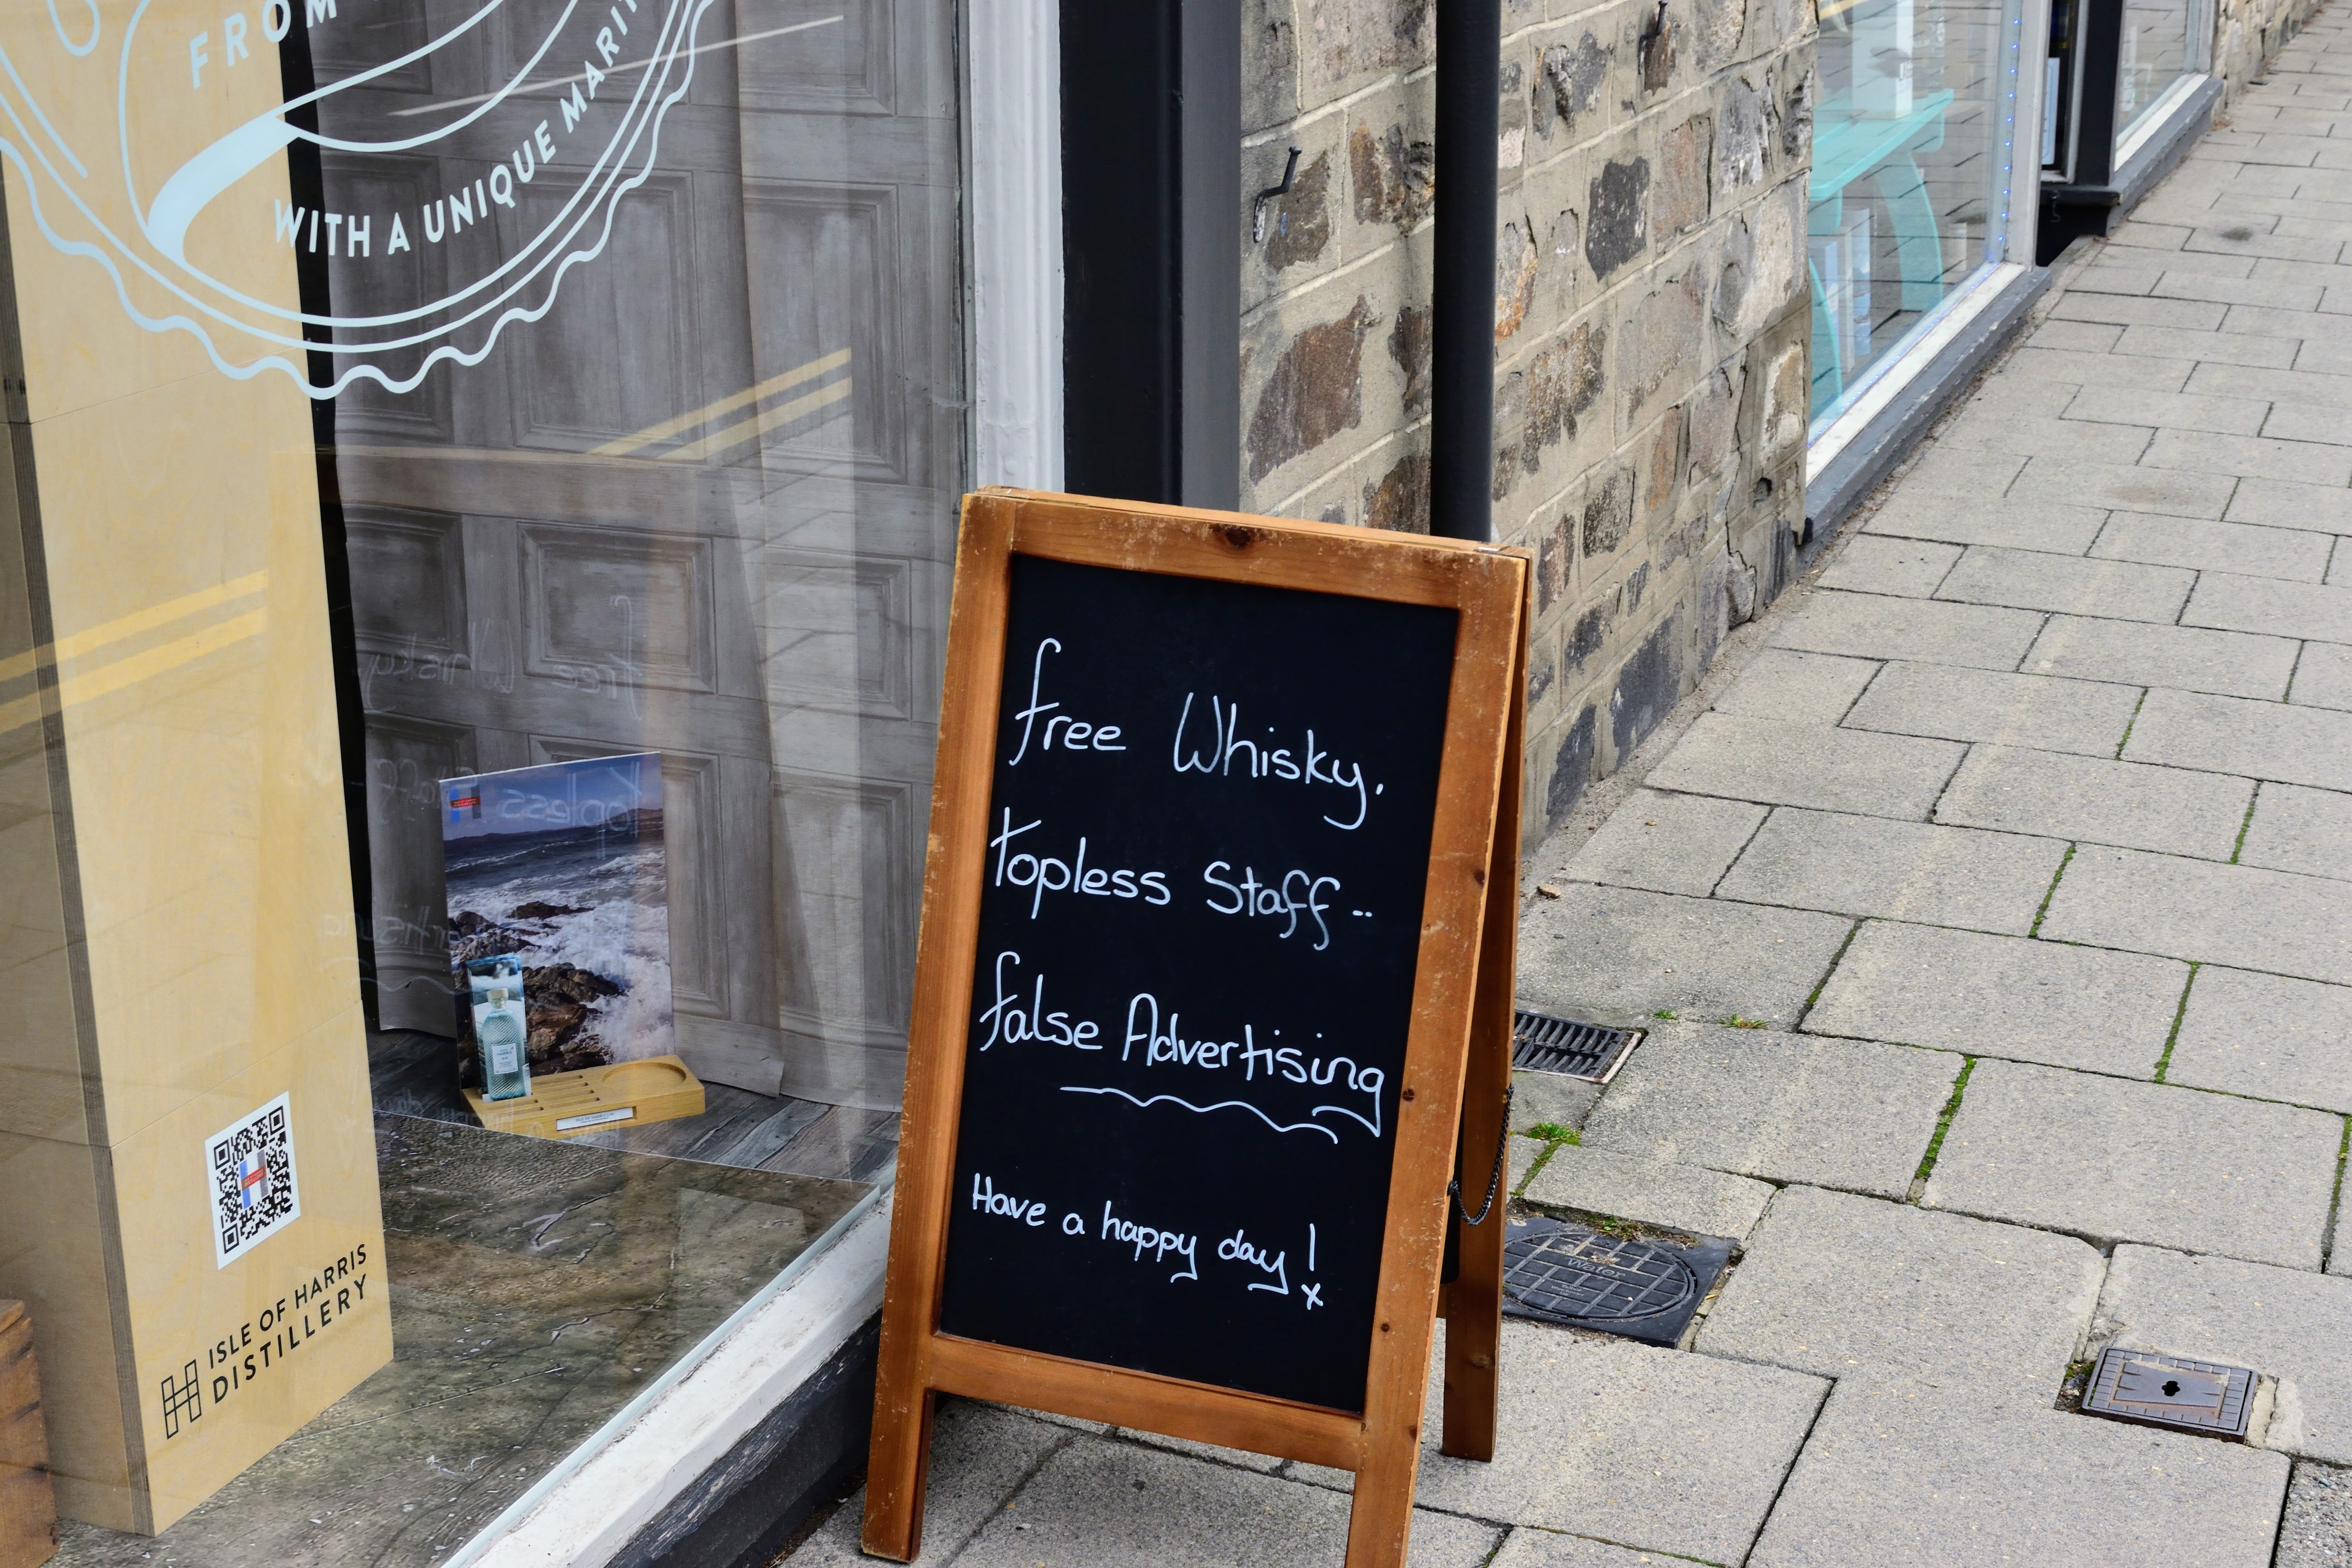 FROM
WITH A UNIQUE
free Whisky.
Topless Staff..
false Advertising
Have a happy day!
x
ISLE OF HARRIS
DISTILLERY
Water